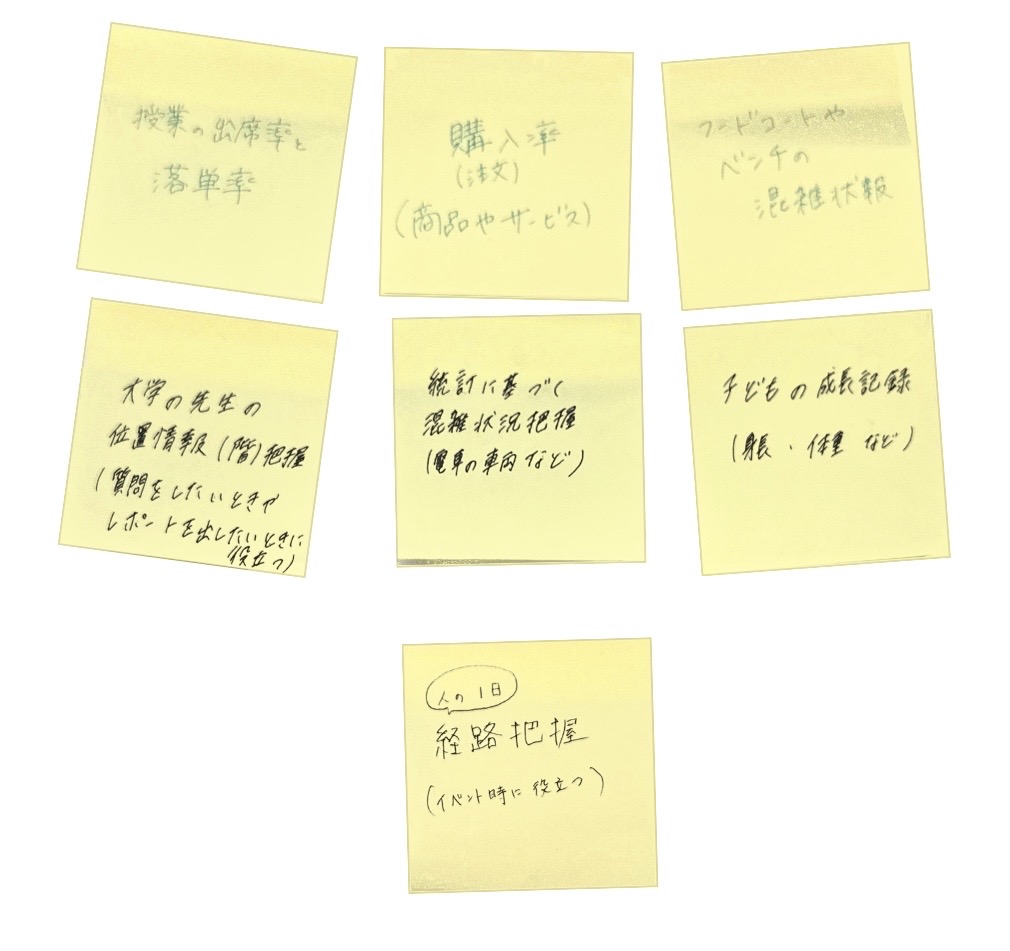 授業の出席率と
落単率
購入率
(注文)
(商品やサービス)
フードコートや
ベンチの
混雑状報
大学の先生の
位置情報(階)把握
(質問をしたいときや
レポートを出したいときに
役立つ)
統計に基づく
混雑状況把握
(電車の車両など)
子どもの成長記録
(身長・体重など)
人の1日
経路把握
(イベント時に役立つ)